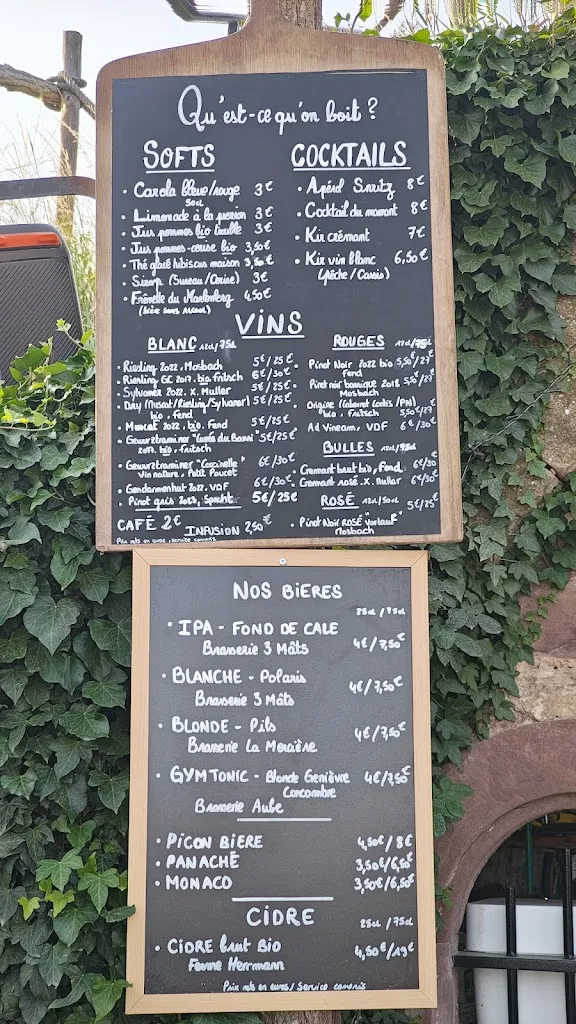 Qu'est-ce qu'on boit ?
SOFTS
• Carola bleue/rouge 3€
50cl
• Limonade à la pression 3€
• Jus pommes bio trouble 3€
• Jus pommes-cerise bio 3,50€
Thé glacé hibiscus maison 3,50€
• Sirop (Sureau/Cerise) 3€
• Frênette du Marlenberg 4,50€
(bière sans Alcool)
COCKTAILS
• Apérol Spritz 8€
• Cocktail du moment 8€
• Kir crémant 7€
• Kir vin blanc 6,50€
(Pêche/Cassis)
VINS
BLANC 12cl/75cl
• Riesling 2022, Mosbach 5€/25€
• Riesling GC 2017, bio, Fritsch 6€/30€
• Sylvaner 2022, X. Muller 5€/25€
• Dry (Muscat/Riesling/Sylvaner) 5€/25€
bio, Fend
• Muscat 2022, bio, Fend 5€/25€
• Gewurztraminer "Cuvée du Baani" 5€/25€
2017, bio, Fritsch
• Gewurztraminer "Coccinelle" 6€/30€
Vin nature, Petit Poucet
• Gendarmenhut 2022, VDF 6€/30€
• Pinot gris 2023, Specht 5€/25€
CAFÉ 2€ INFUSION 2,50€
Prix nets en euros, service compris
ROUGES 12cl/75cl
• Pinot Noir 2022 bio 5,50/27€
Fend
• Pinot noir barrique 2018 5,50/27€
Mosbach
• Origine (Cabernet Cortis/PN) 5,50/27€
bio, Fritsch
• Ad Vineam, VDF 6€/30€
BULLES 12cl/75cl
• Cremant brut bio, Fend 6€/30€
• Cremant rosé, X. Muller 6€/30€
ROSÉ 12cl/50cl
5€/25€
• Pinot Noir Rosé "Vorlauf"
Mosbach
NOS BIERES
25cl / 75cl
• IPA - FOND DE CALE 4€/7,50€
Brasserie 3 Mâts
• BLANCHE - Polaris 4€/7,50€
Brasserie 3 Mâts
• BLONDE - Pils 4€/7,50€
Brasserie La Mercière
• GYM TONIC - Blonde Genièvre 4€/7,50€
Concombre
Brasserie Aube
• PICON BIERE 4,50€/8€
• PANACHÉ 3,50€/6,50€
• MONACO 3,50€/6,50€
CIDRE 25cl / 75cl
• CIDRE brut BIO 4,50€/19€
Ferme Herrmann
Prix nets en euros/Service compris